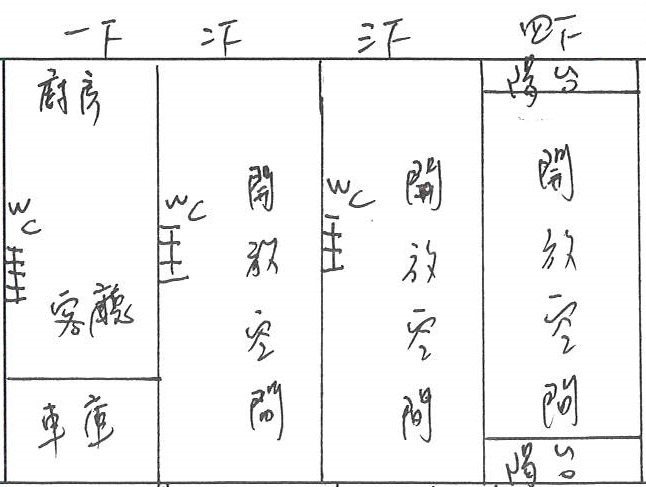 一F
廚房
WC
客廳
車庫
二F
WC
開放空間
三F
WC
開放空間
四F
陽台
開放空間
陽台